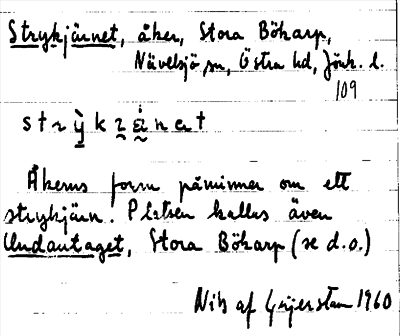 Strykjärnet, åker, Stora Bökarp,
Nävelsjö sn, Östra hd, Jönk. l.
109
Åkerns form påminner om ett
strykjärn. Platsen kallas även
Undantaget, Stora Bökarp (se d.o.)
Nils af 1960